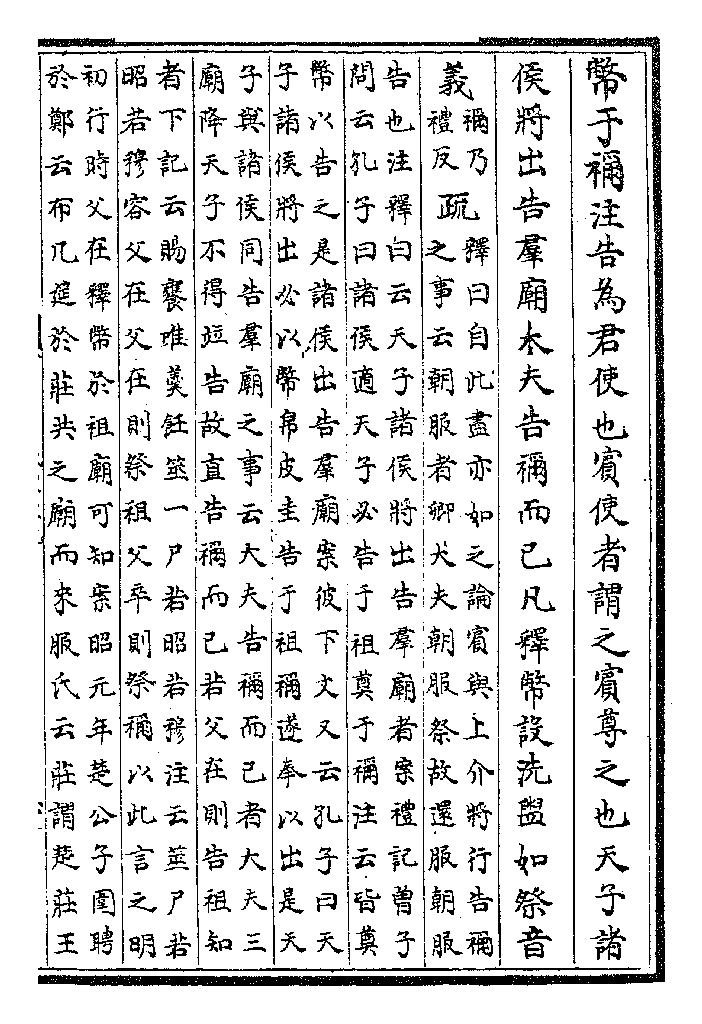 幣于禰注告為君使也賓使者謂之賓尊之也天子諸
侯將出告羣廟大夫告禰而已凡釋幣設洗盥如祭音
義禰乃
禮反疏釋曰自此盡亦如之論賓與上介將行告禰
之事云朝服者卿大夫朝服祭故還服朝服
告也注釋曰云天子諸侯將出告羣廟者案禮記曽子
問云孔子曰諸侯適天子必告于祖奠于禰注云皆奠
幣以告之是諸侯出告羣廟案彼下文又云孔子曰天
子諸侯將出必以幣帛皮圭告于祖禰遂奉以出是天
子與諸侯同告羣廟之事云大夫告禰而已者大夫三
廟降天子不得並告故直告禰而已若父在則告祖知
者下記云賜饔唯羮飪筮一尸若昭若穆注云筮尸若
昭若穆容父在父在則祭祖父卒則祭禰以此言之明
初行時父在釋幣於祖廟可知案昭元年楚公子圍聘
於鄭云布几筵於莊共之廟而來服氏云莊謂楚莊王